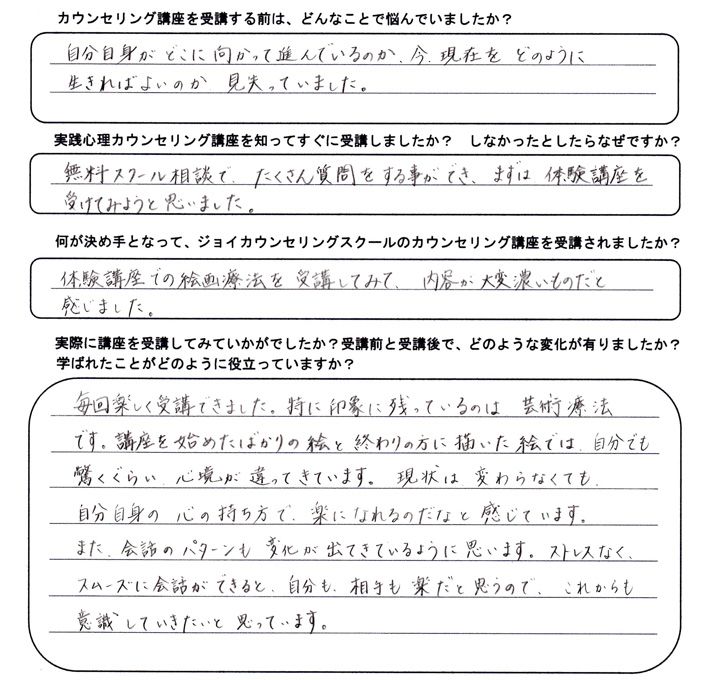 カウンセリング講座を受講する前は、どんなことで悩んでいましたか？
自分自身が どこに 向かって 進んでいるのか、今、現在を どのように
生きればよいのか 見失っていました。
実践心理カウンセリング講座を知ってすぐに受講しましたか？ しなかったとしたらなぜですか？
無料スクール相談で、たくさん質問をする事ができ、まずは 体験講座を
受けてみようと思いました。
何が決め手となって、ジョイカウンセリングスクールのカウンセリング講座を受講されましたか？
体験講座での絵画療法を 受講してみて、 内容が大変濃いものだと
感じました。
実際に講座を受講してみていかがでしたか？受講前と受講後で、どのような変化が有りましたか？
学ばれたことがどのように役立っていますか？
毎回楽しく受講できました。特に印象に残っているのは 芸術療法
です。講座を始めたばかりの絵と 終わりの方に描いた絵では、自分でも
驚くぐらい、心境が 違ってきています。 現状は 変わらなくても、
自分自身の 心の持ち方で、楽になれるのだなと 感じています。
また、会話のパターンも 変化が出てきているように思います。ストレスなく、
スムーズに会話ができると、自分も、相手も 楽だと思うので、これからも
意識していきたいと 思っています。